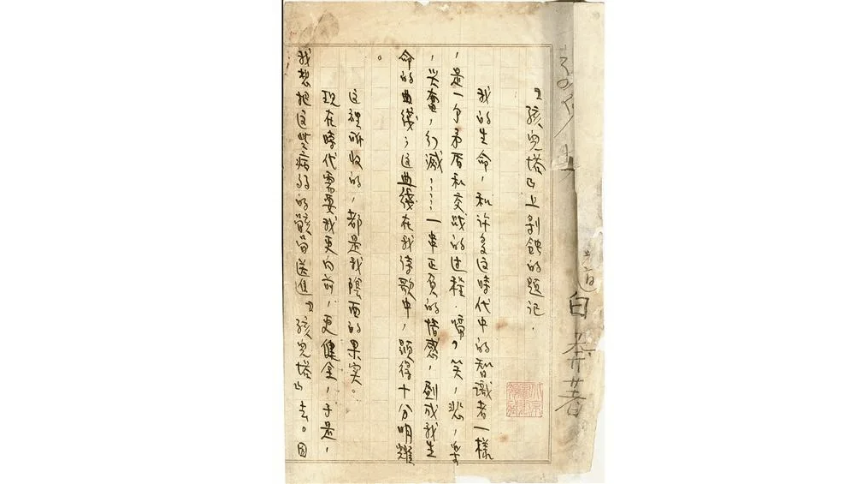 白莽著
『孩児塔』上剝蝕的題記．
我的生命，和许多这時代中的智識者一樣
，是一个矛盾和交战的过程．啼，笑，悲，楽
，兴奮，幻滅，……一串正負的情感，劃成我生
命的曲綫；这曲綫在我诗歌中，顕得十分明耀
。
这裡所收的，都是我陰面的果实。
现在時代需要我更向前，更健全，于是，
我想把这些病弱的骸骨送進『孩児塔』去。因